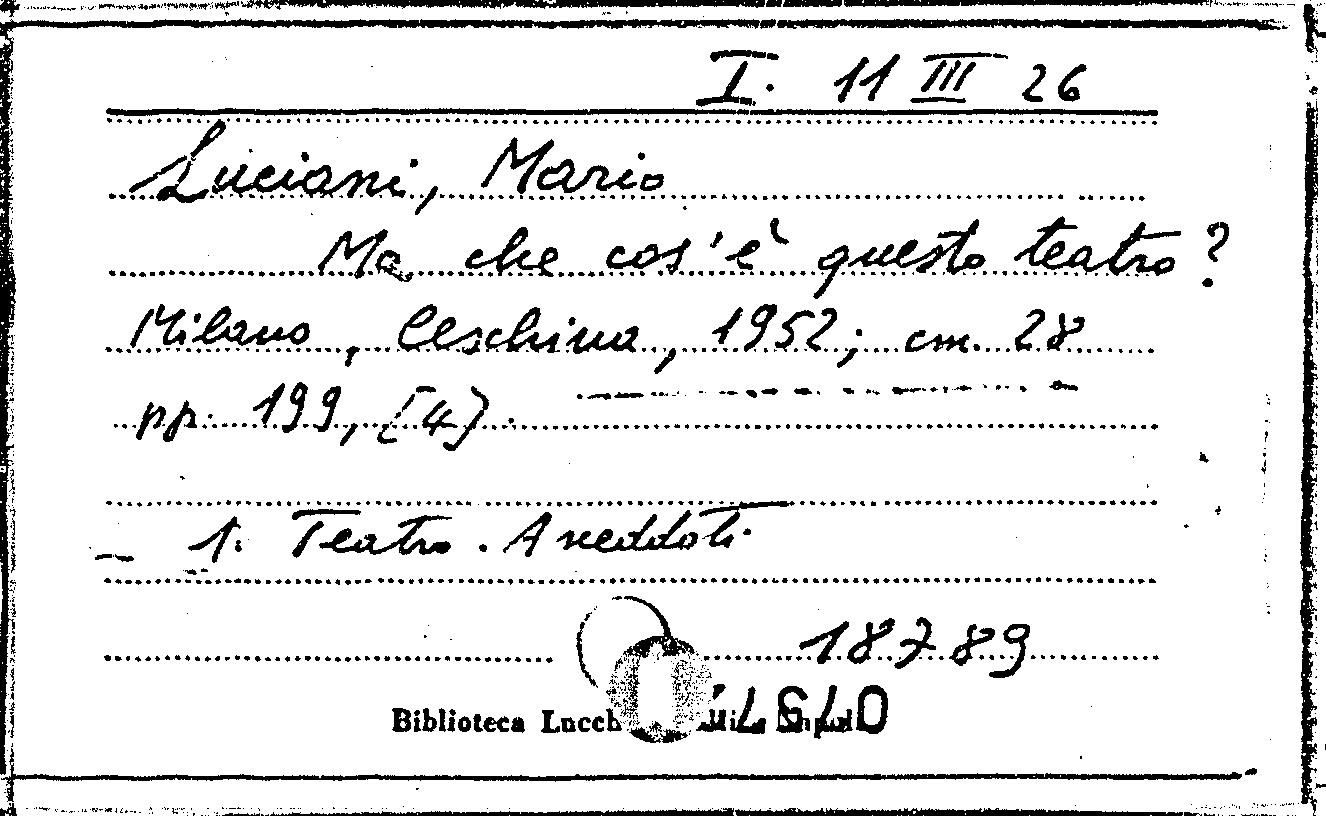 I. 11 III 26
Luciani, Mario
Ma che cos'è questo teatro?
Milano, Ceschina, 1952; cm. 28
pp. 199, [4].
1. Teatro. Aneddoti
18789
Biblioteca